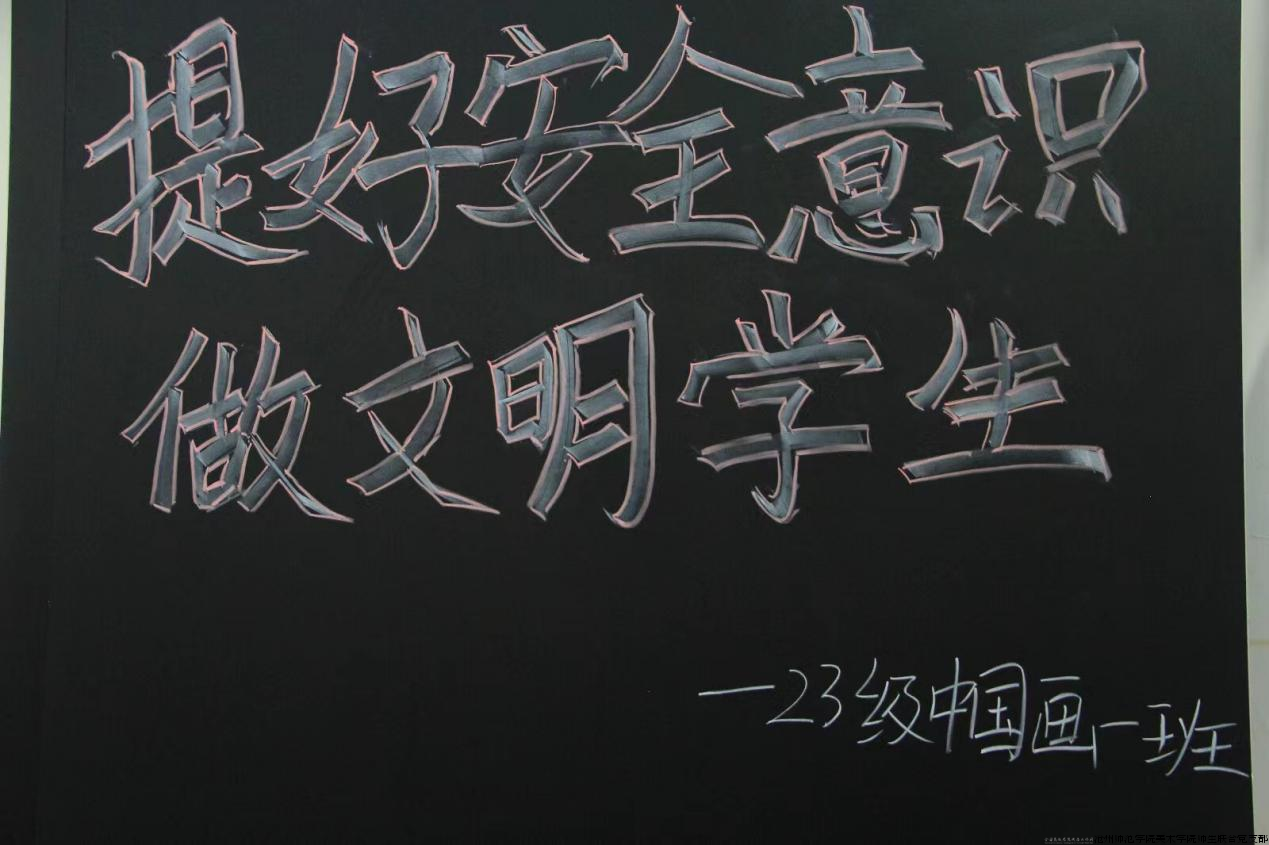 提好安全意识
做文明学生
—23级中国画一班